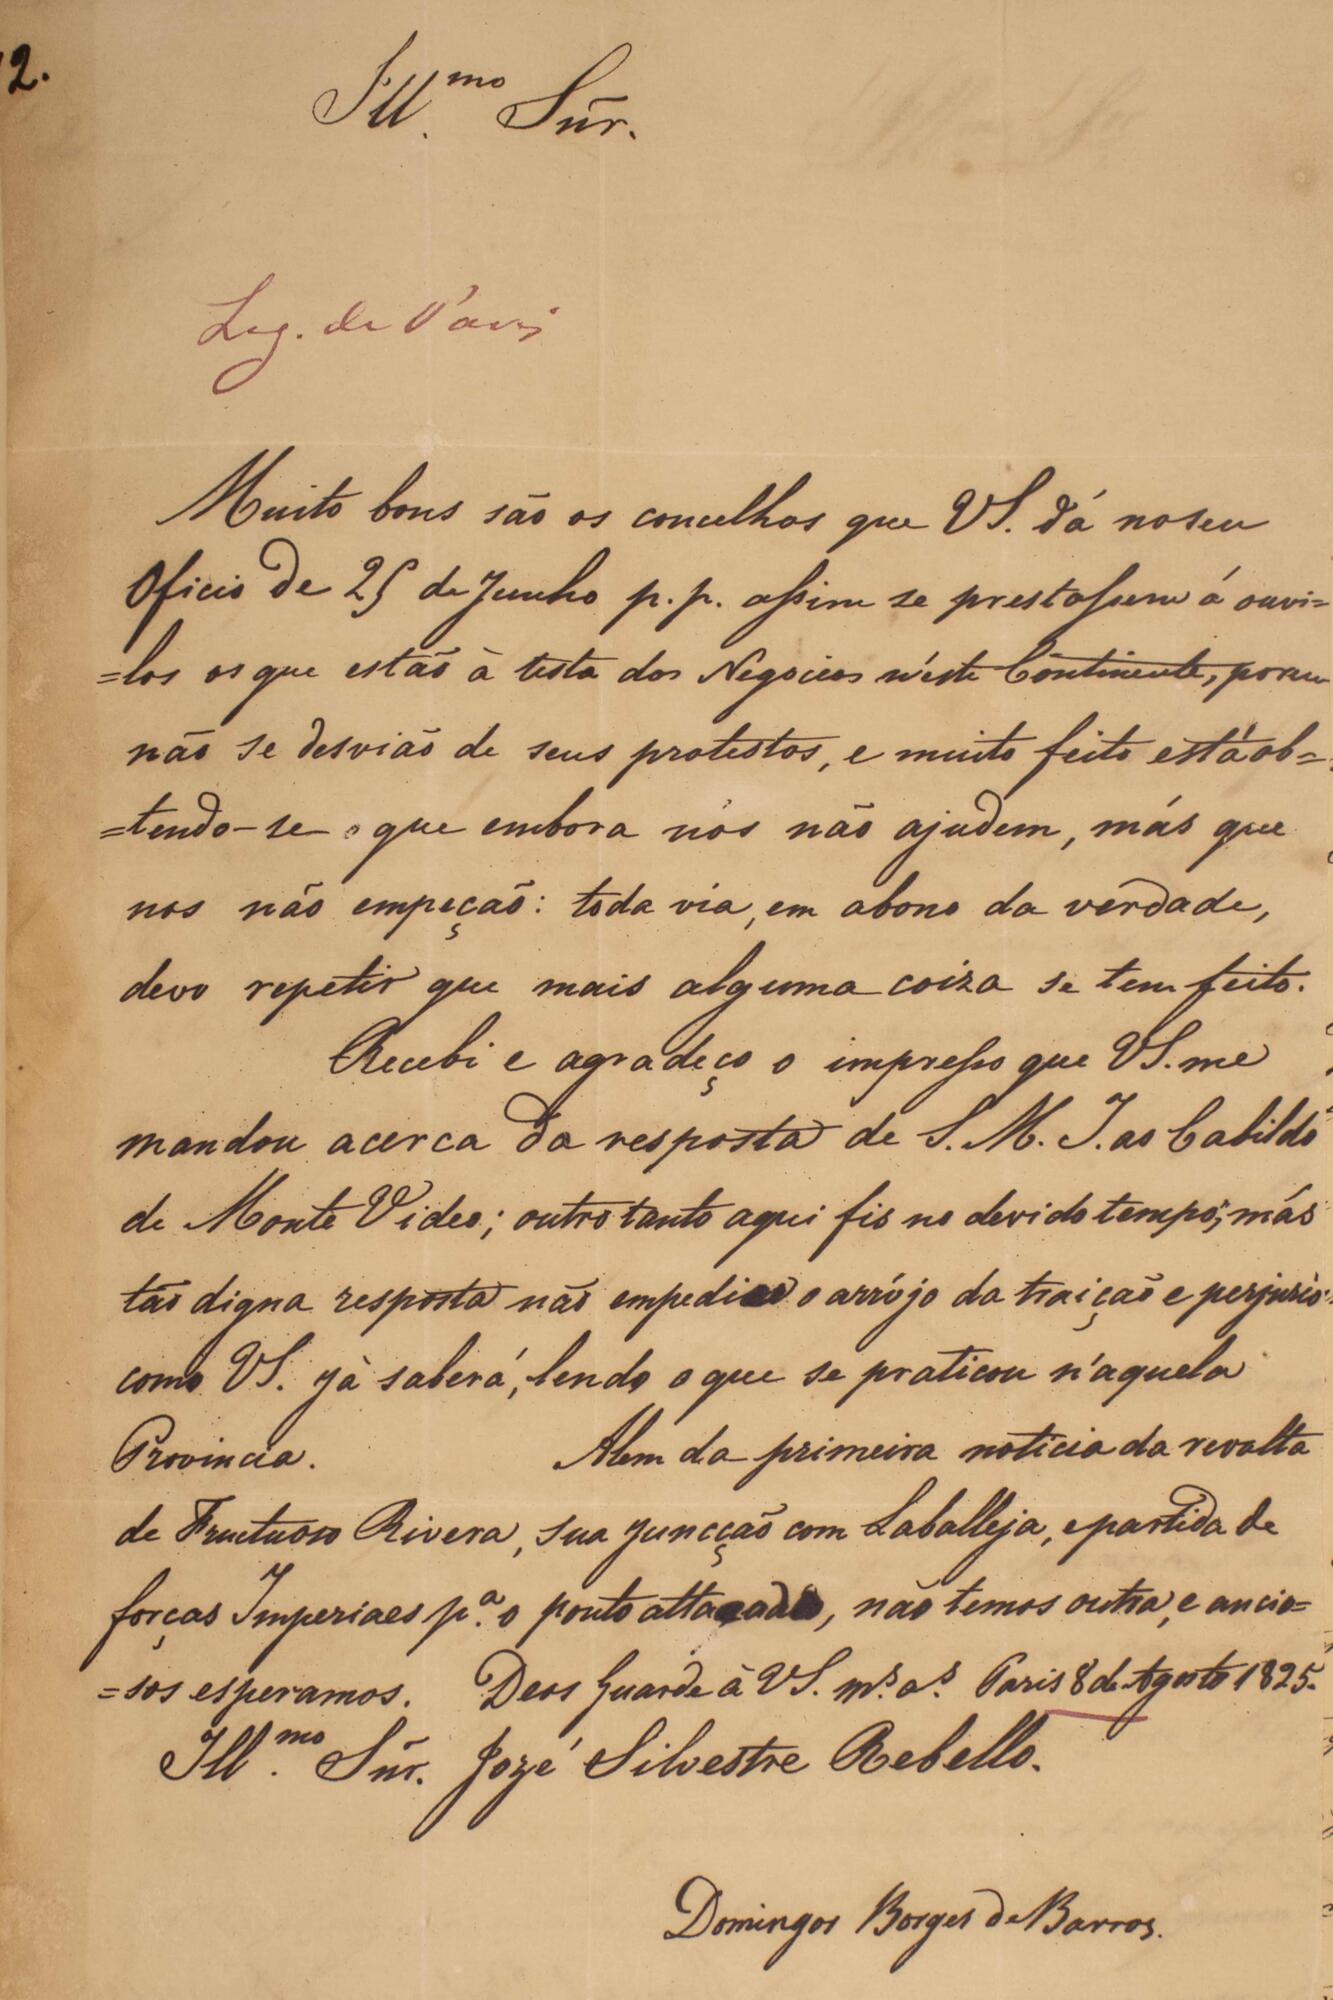 12.
Ill.mo Sñr.
Leg. de Paris
Muito bons são os concelhos que VS. dá no seu
Oficio de 25 de Junho p.p. assim se prestassem á ouvi=
=los os que estão à testa dos Negocios n'este Continente, porem
não se desvião de seus protestos, e muito feito está ob=
=tendo-se o que embora nos não ajudem, más que
nos não empeção: toda via, em abono da verdade,
devo repetir que mais alguma coiza se tem feito.
Recebi e agradeço o impresso que VS. me
mandou acerca da resposta de S. M. I. ao Cabildo
de Monte Video; outro tanto aqui fis no devido tempo; más
tão digna resposta não empedio o arrójo da traição e perjurio
como VS. já saberá, lendo o que se praticou n'aquela
Provincia. Alem da primeira noticia da revolta
de Fructuoso Rivera, sua juncção com Laballeja, e partida de
forças Imperiaes p.a o ponto attacado, não temos outra, e ancio=
=sos esperamos. Deos Guarde à VS. m.s a.s Paris 8 de Agosto 1825.
Ill.mo Sñr. Jozé Silvestre Rebello.
Domingos Borges de Barros.